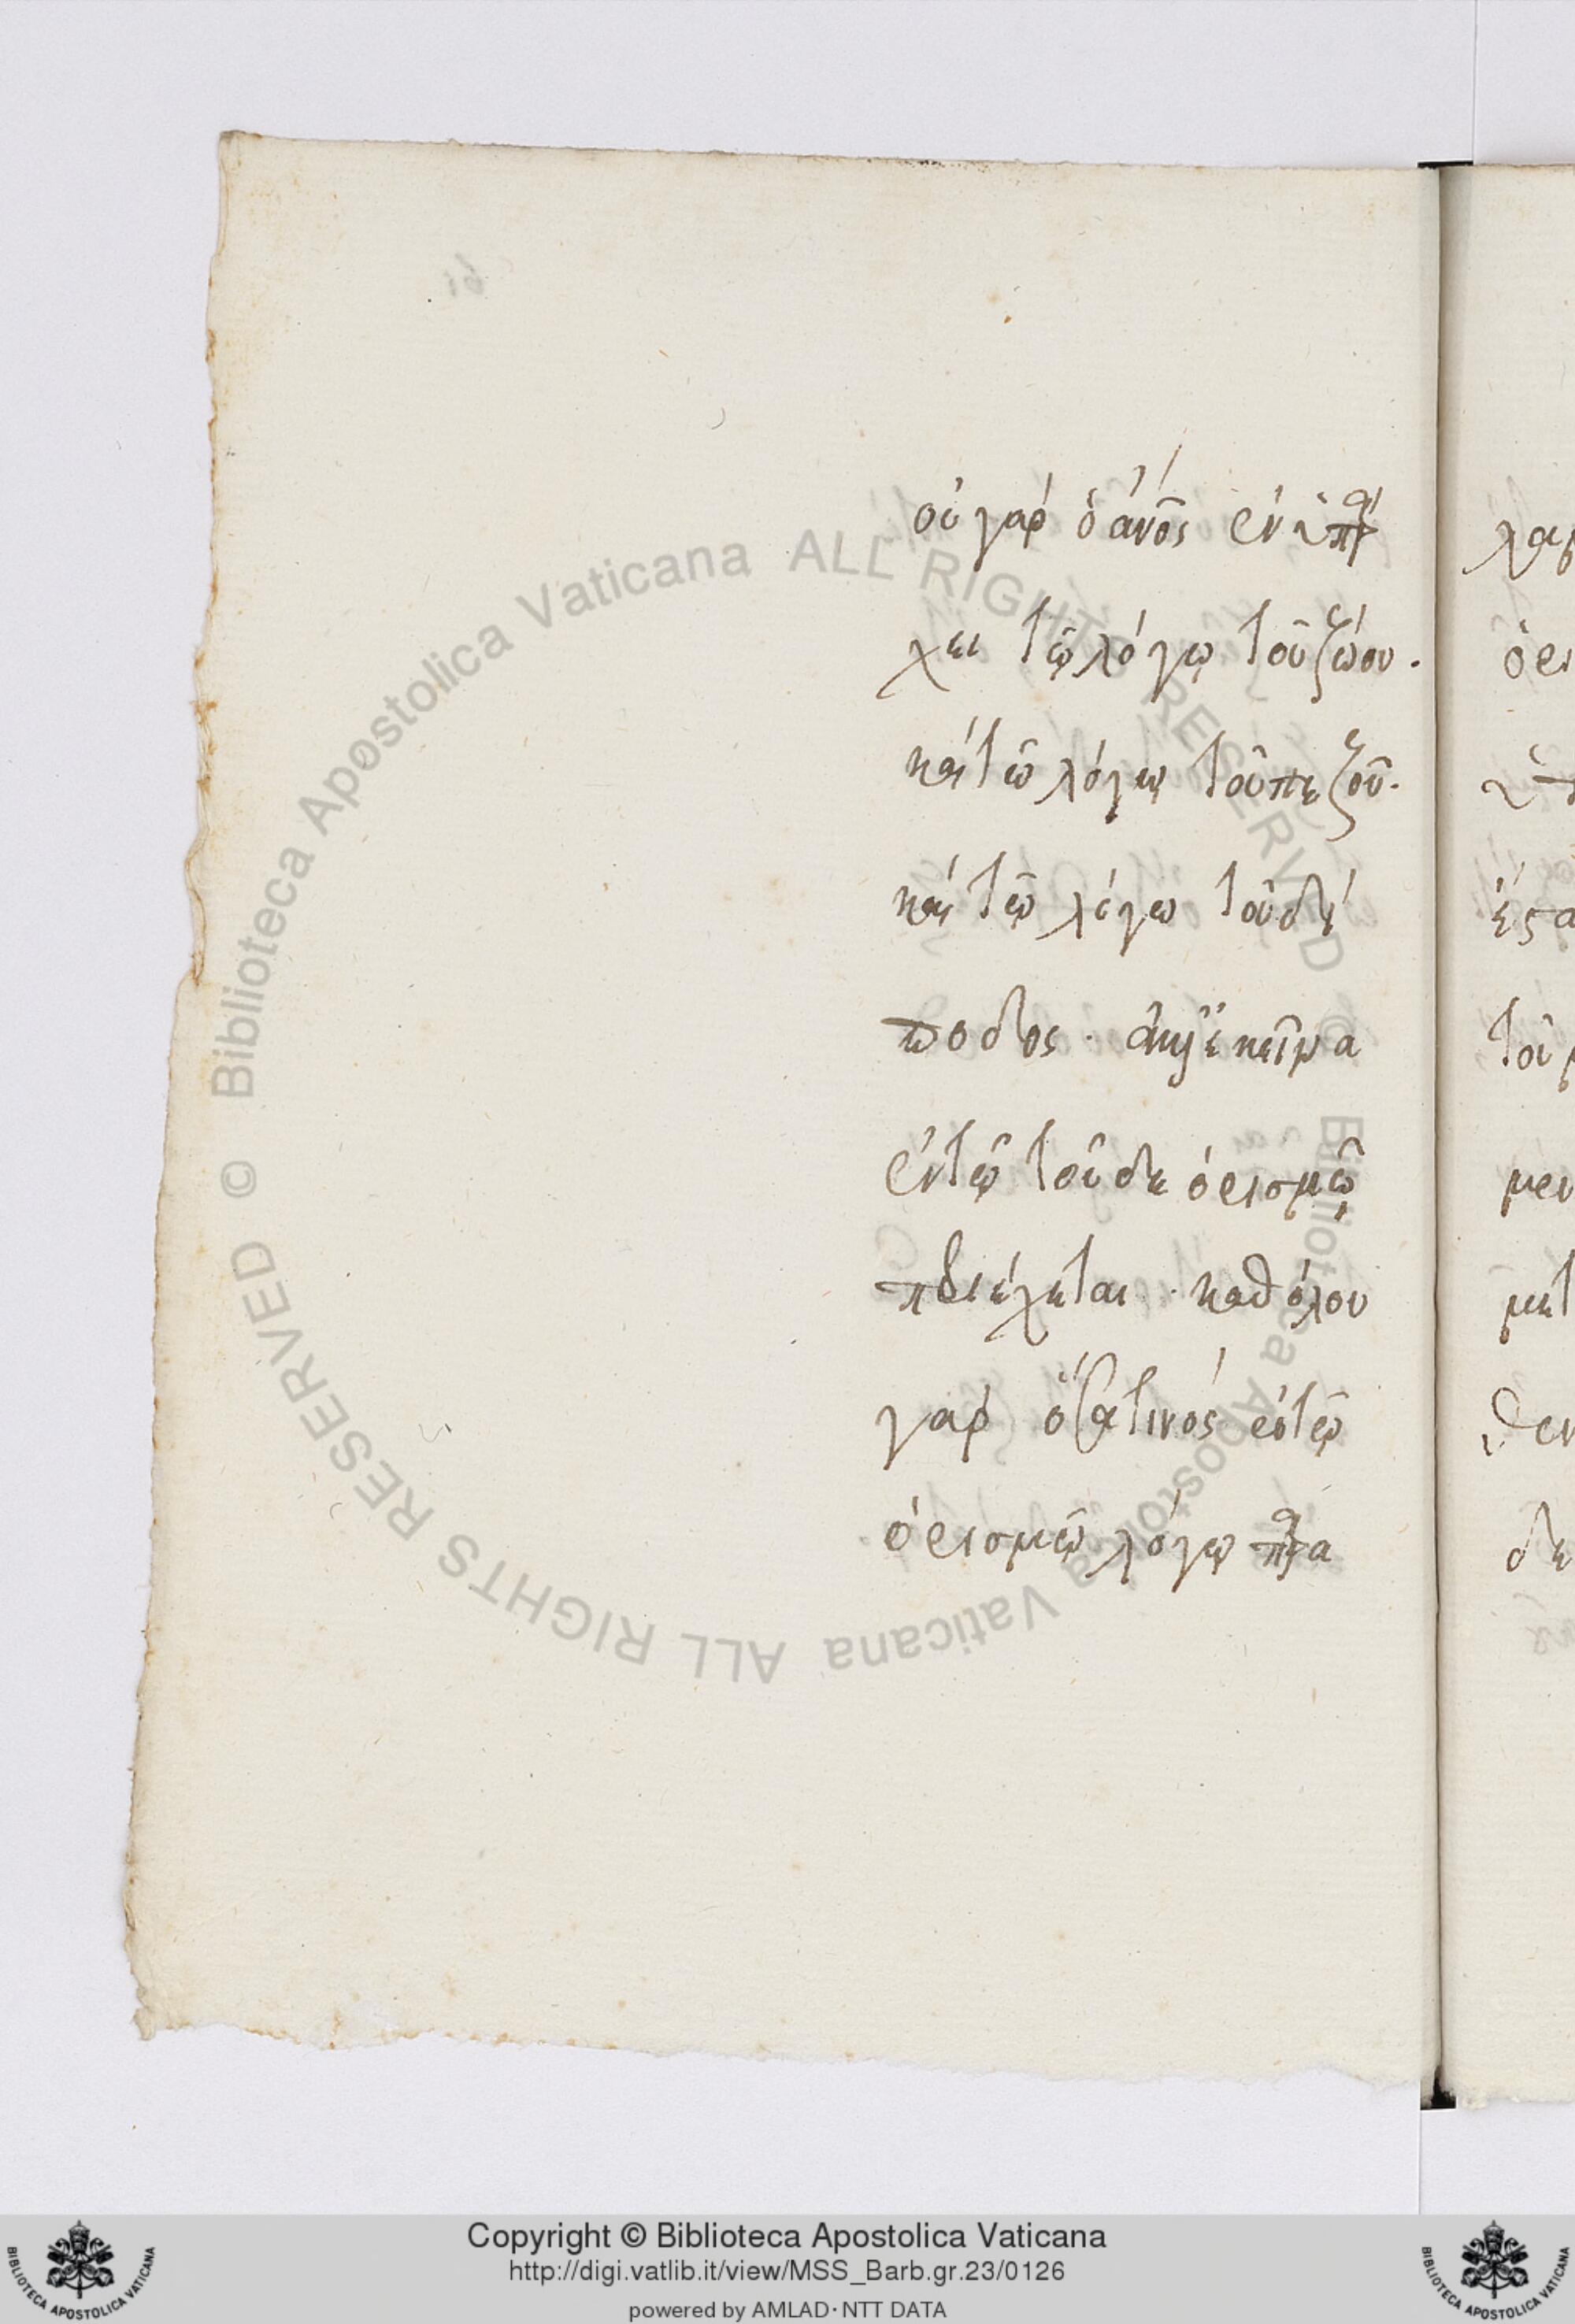 οὐ γὰρ ὁ ἄνος ἐνυπάρ
χει τῷ λόγῳ τοῦ ζώου.
καὶ τῷ λόγῳ τοῦ πεζοῦ.
καὶ τῷ λόγῳ τοῦ δί
ποδος. ἀλλ' ἐκεῖνα
ἐν τῷ τούδε ὁρισμῷ
περιέχεται. καθόλου
γὰρ ὅσα τινὸς ἐν τῷ
ὁρισμῷ λόγῳ παρα
© Biblioteca Apostolica Vaticana ALL RIGHTS RESERVED © Biblioteca Apostolica Vaticana ALL RIGHTS RESERVED
Copyright © Biblioteca Apostolica Vaticana
http://digi.vatlib.it/view/MSS_Barb.gr.23/0126
powered by AMLAD·NTT DATA
BIBLIOTECA APOSTOLICA VATICANA
BIBLIOTECA APOSTOLICA VATICANA